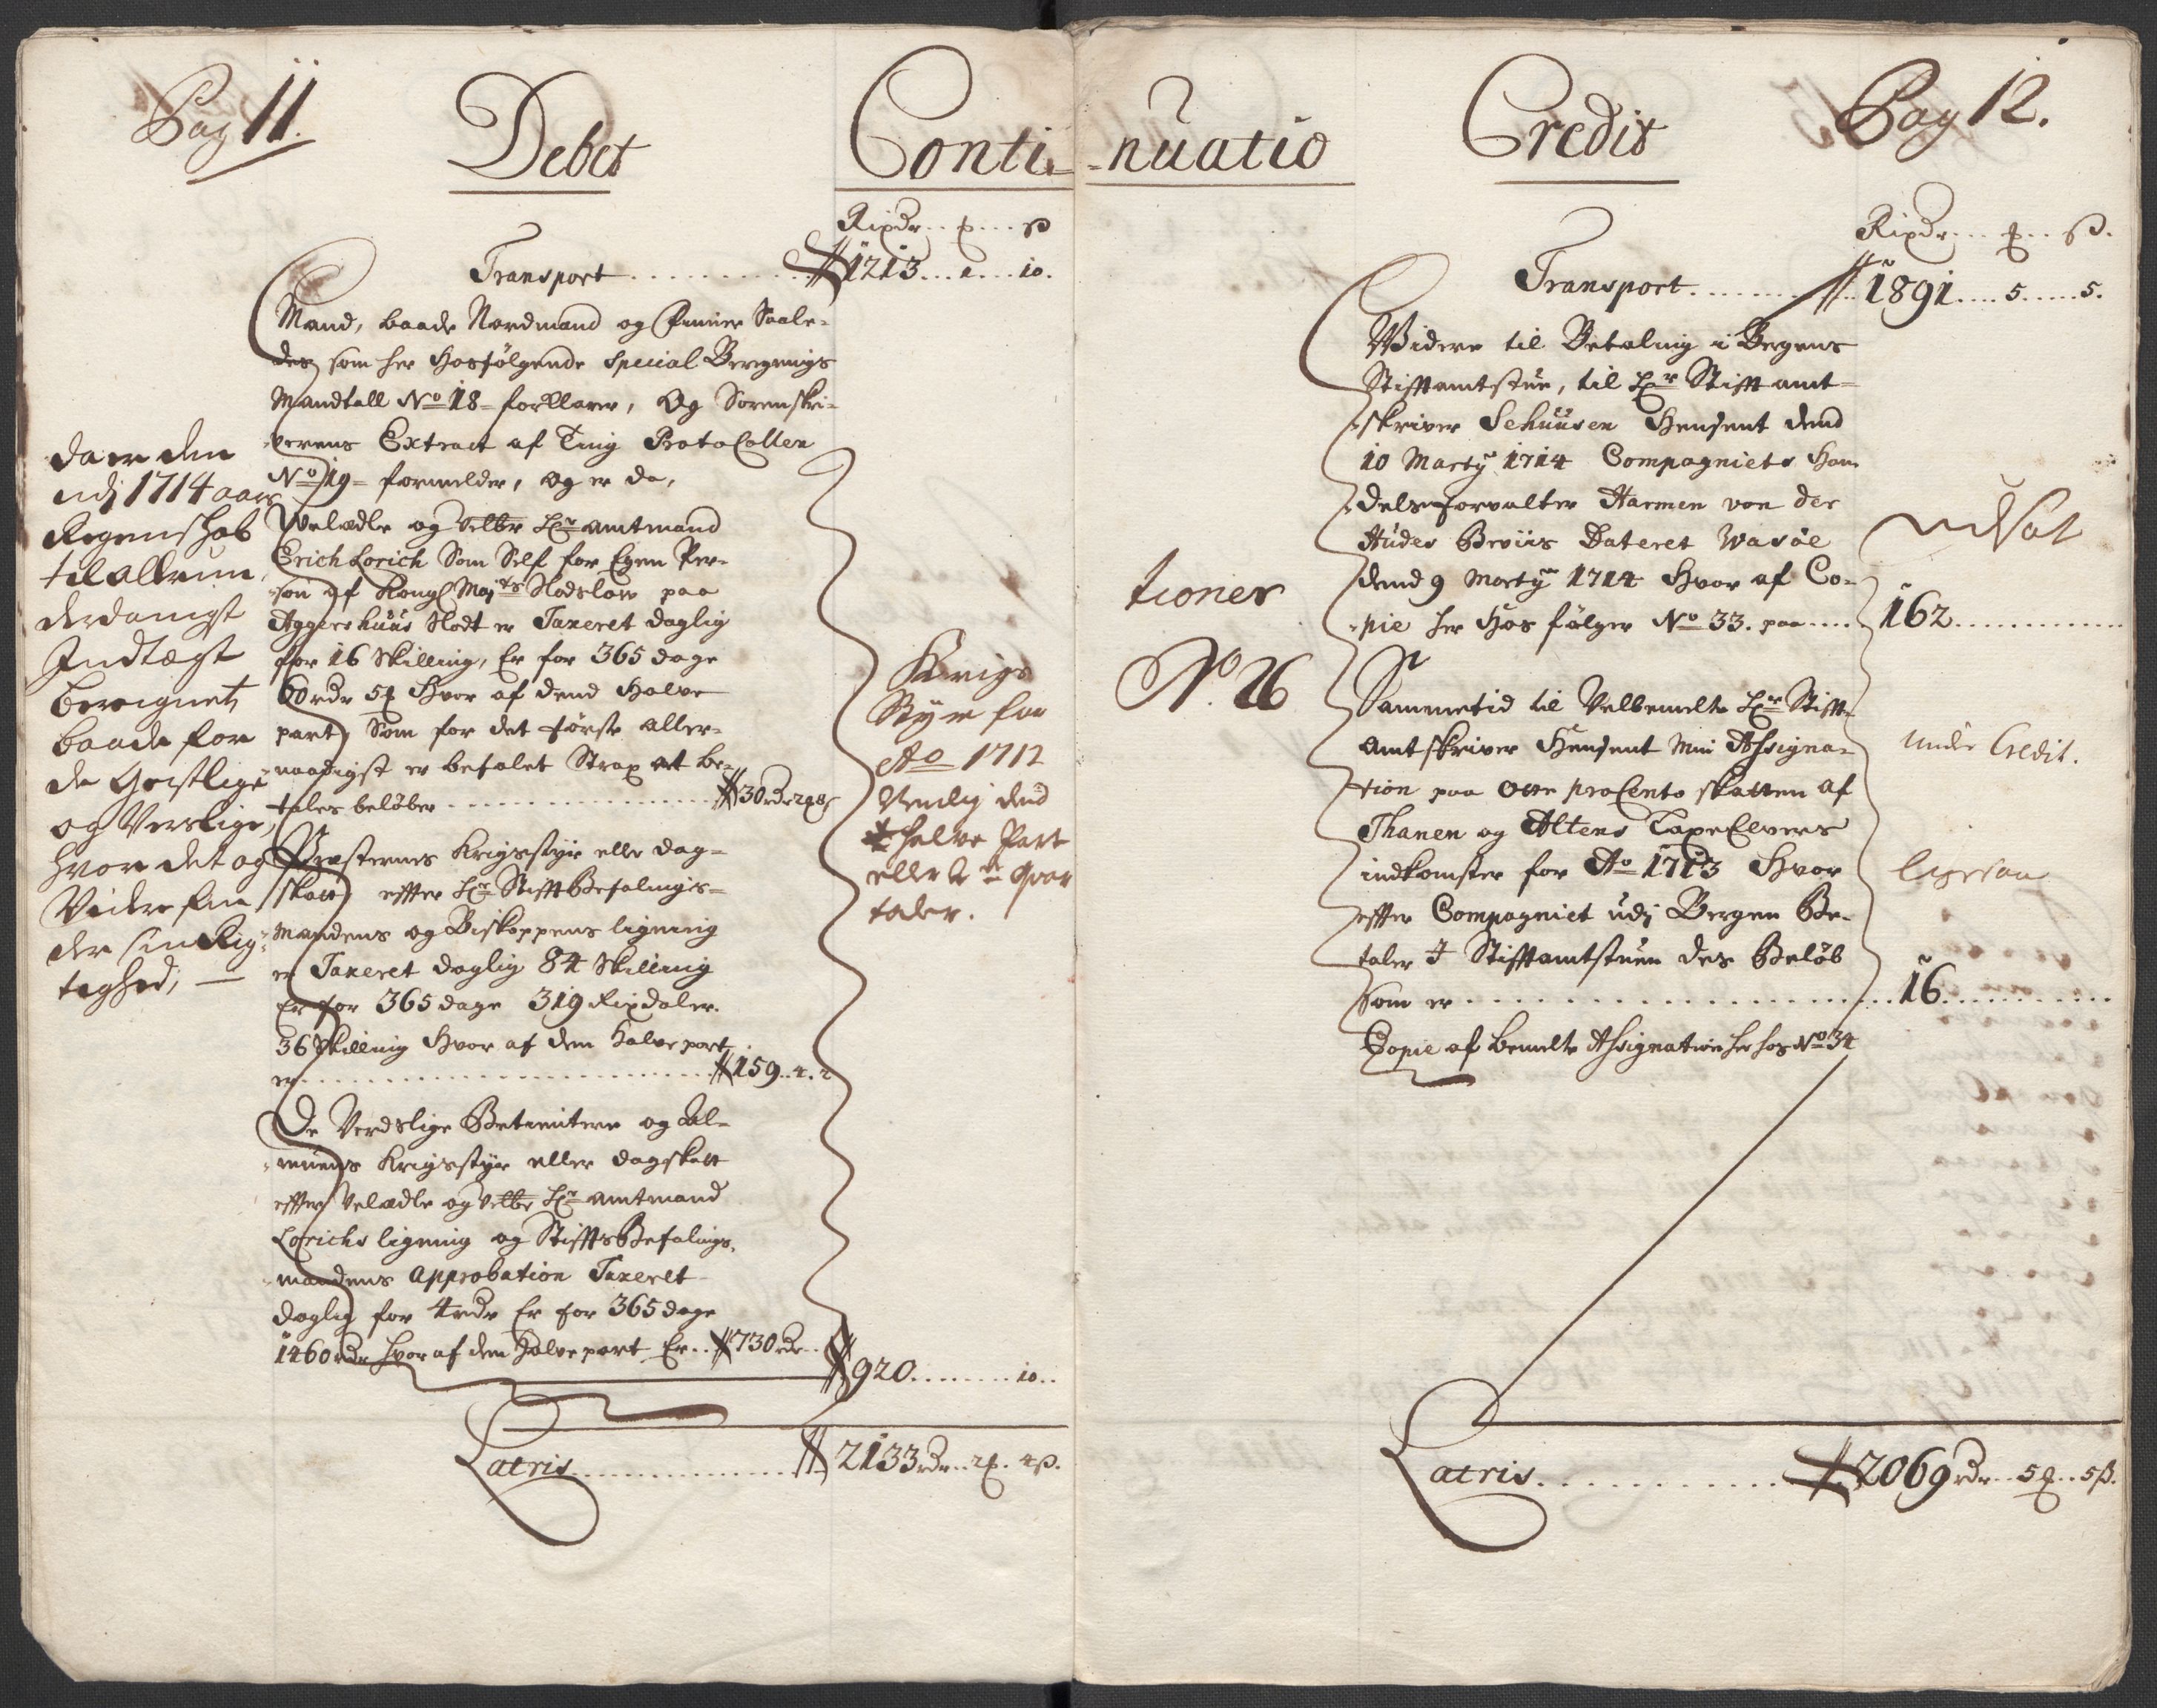 Pag 11.
Debet
Conti-
Rixdr.. ... ß
Transport ......... 1213 ... 1 ... 10.
Mand, baade Nordmænd og Finner Saale-
des som her Hosfölgende Special Beregnings
Mandtall No 18 - forklarer, Og Sorenskri-
verens Extract af Ting Protocollen
No 19 - formelder, og er da,
Velædle og Velbr Hr Amtmand
Erich Lorich Som Self for Egen Per-
son af Kongl Majts Slodslow paa
Aggershuus Slodt er Taxeret daglig
for 16 Skilling, Er for 365 dage
60 rdr 5 Hvor af dend Halve
part, Som for det første aller-
naadigst er befalet Strax at be-
tales beløber ......... 30 rdr 2 8
Præsternes Krigsstyr eller dag-
skatt effter Hr Stifft Befalings-
Mandens og Biskoppens ligning
er Taxeret daglig 84 Skilling
Er for 365 dage 319 Rixdaler.
36 Skilling Hvor af den halve part
er ......... 159 .. 4. 2
De Verdslige Betienter og Al-
muens Krigsstyr eller dagskatt
effter Velædle og Velbr Hr Amtmand
Lorichs ligning og Stiffts Befalings-
mandens Approbation Taxeret
daglig for 4 rdr Er for 365 dage
1460 rdr hvor af den Halve part Er .. 730 rdr ..
920 ......... 10 ..
Latris ......... 2133 rdr .. 2 . 4 ß.
da er den
udj 1714 aars
Regenskab
til allerun
derdanigst
Indtægt
beregnet,
baade for
de Geistlige
og Verslige,
hvor det og
Videre fin
der sin Rig-
tighed, —
Krigs
Styr for
Ao 1712
Nemlig dend
halve Part
eller 2de Qvar
taler.
-nuatio
Credit
Pag 12.
Rixdr ... ... ß.
Transport ......... 1891 .... 5 .... 5.
Widere til Betaling i Bergens
Stifftamtstue, til Hr Stifft amt-
skriver Schuusen Hensent dend
10 Marty 1714 Compagniets Han
dels forvalter Harmen von der
Hudes Beviis Dateret Wasöe
dend 9 Marty 1714 Hvor af Co-
pie her Hos fölger No 33. paa ..... 162 .........
Sammetid til Velbemelte Hr Stifft-
Amtskriver Hensent Min Assigna-
tion paa otte proCento skatten af
Thanen og Altens Laxe Elvers
indkomster for Ao 1713 Hvor
effter Compagniet udj Bergen Be-
taler I Stifftamtstuen des Beløb
Som er ......... 16 .........
Copie af bemelte Assignation her hos No 34
Latris ......... 2069 rdr .. 5 .. 5 ß.
tioner
No. 26
udsat
under Credit.
ligesaa